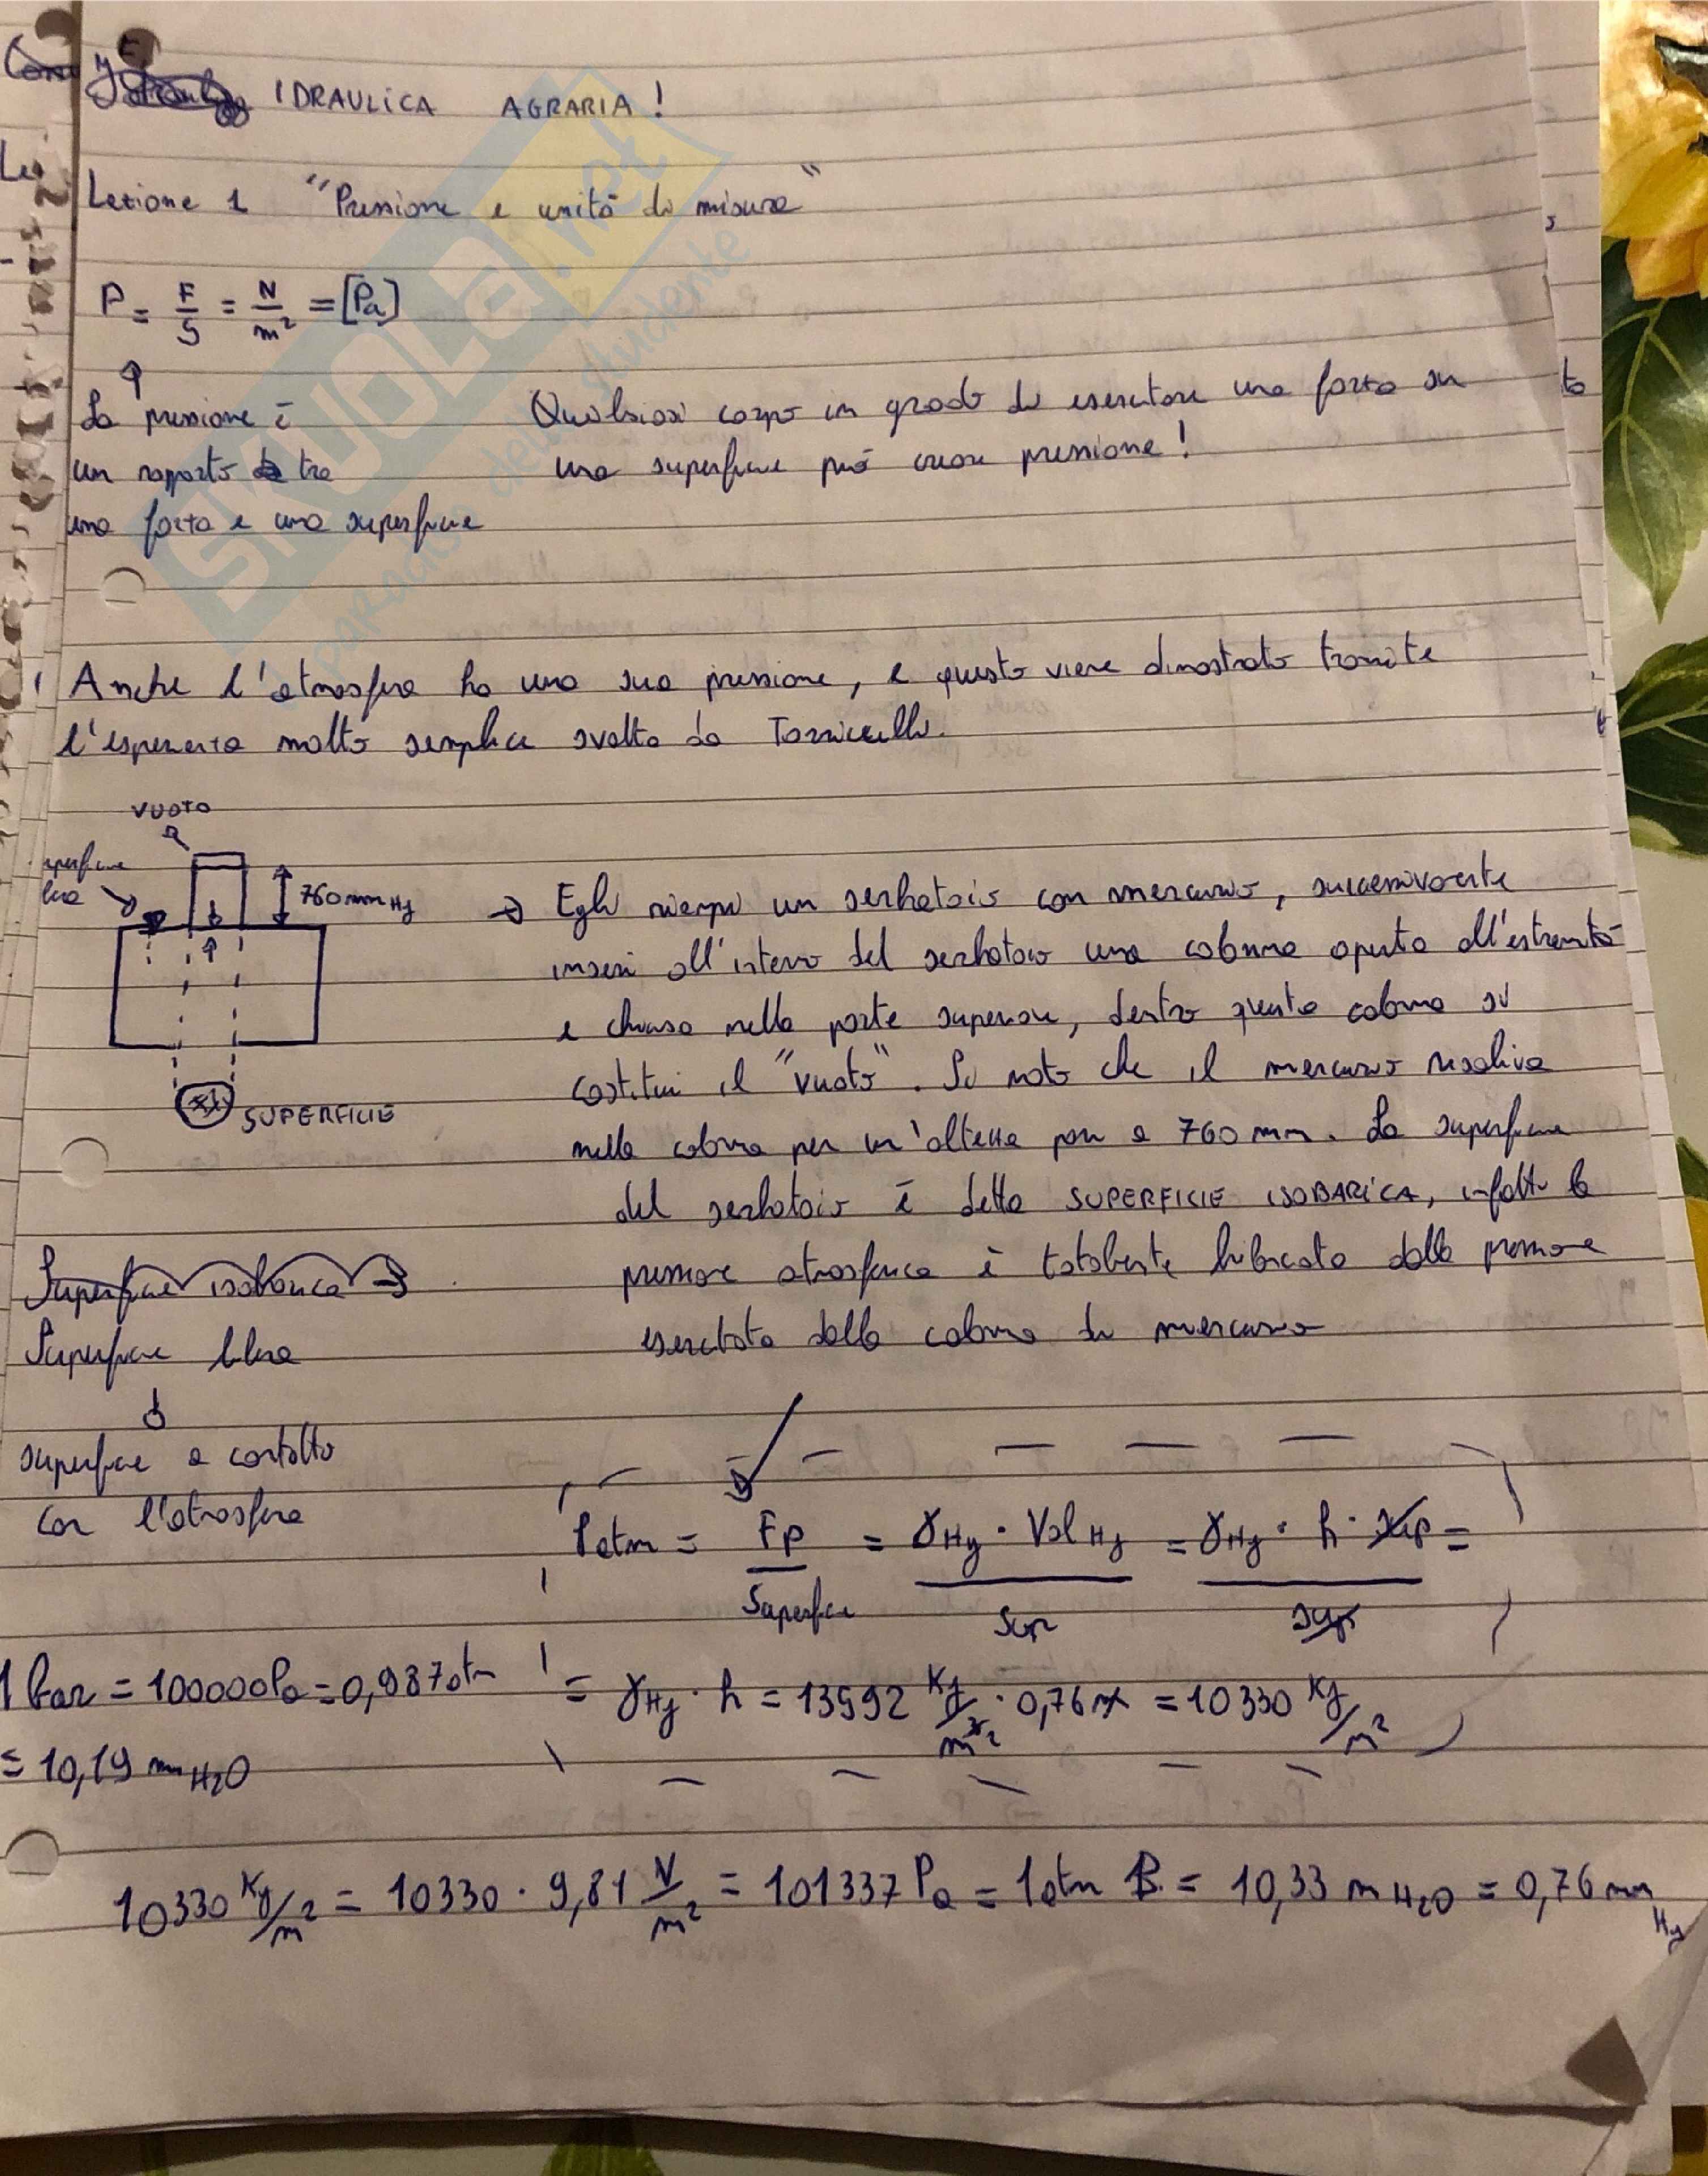 IDRAULICA AGRARIA !
Lezione 1 "Pressione e unità di misura"
P = F/S = N/m² = [Pa]
La pressione è
un rapporto tra
una forza e una superficie
Qualsiasi corpo in grado di esercitare una forza su
una superficie può creare pressione !
Anche l'atmosfera ha una sua pressione, e questo viene dimostrato tramite
l'esperienza molto semplice svolta da Torricelli.
VUOTO
760 mm Hg
SUPERFICIE
→ Egli riempì un serbatoio con mercurio, successivamente
inserì all'interno del serbatoio una colonna aperta all'estremità
e chiusa nella parte superiore, dentro questa colonna si
costituì il "vuoto". Si notò che il mercurio risaliva
nella colonna per un'altezza pari a 760 mm. La superficie
del serbatoio è detta SUPERFICIE ISOBARICA, infatti la
pressione atmosferica è totalmente bilanciata dalla pressione
esercitata dalla colonna di mercurio
Superficie isobarica →
Superficie libera
↓
superficie a contatto
con l'atmosfera
Patm = Fp/Superficie = γHg · Vol Hg/Sup = γHg · h · sup/sup =
= γHg · h = 13592 Kg/m² · 0,76 m = 10330 Kg/m²
1 bar = 100000 Pa = 0,987 atm
= 10,19 mm H2O
10330 Kg/m² = 10330 · 9,81 N/m² = 101337 Pa = 1 atm = 10,33 m H2O = 0,76 mm Hg
SKUOLa.net
paradiso dello studente